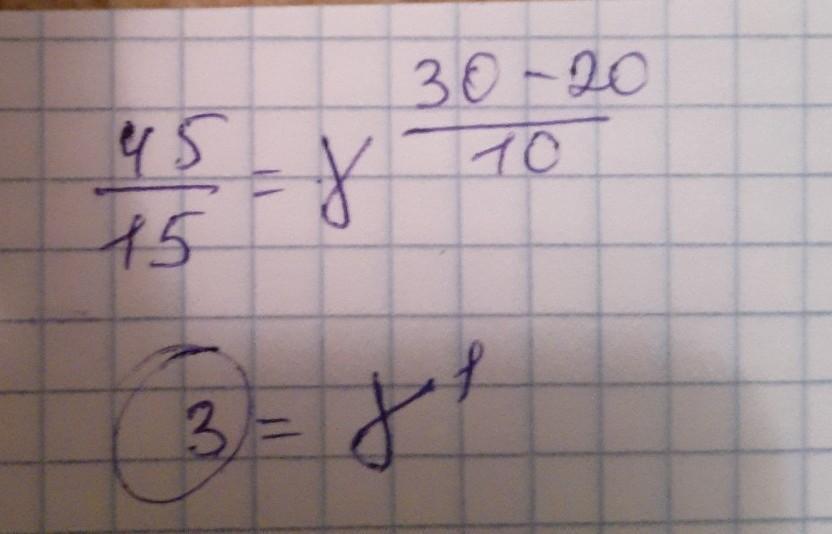 45/15 = γ^((30-20)/10)
3 = γ^1